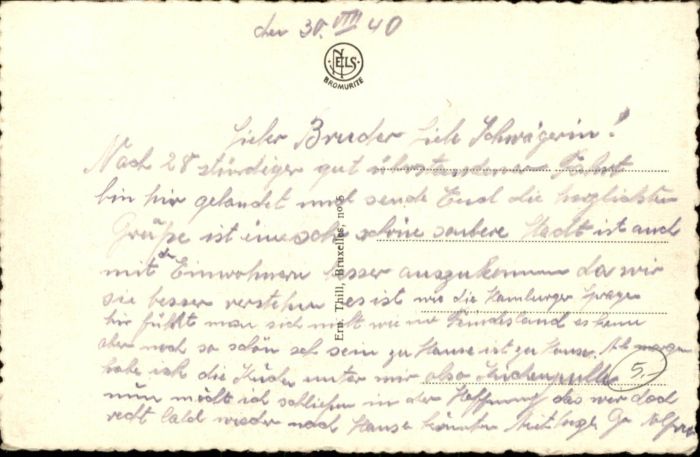 den 30. VIII 40
NELS
BROMURITE
Lieber Bruder Liebe Schwägerin!
Nach 28 stündiger gut überstandener Fahrt
bin hir gelandet und sende Euch die herzlichsten
Grüße ist eine sehr schöne saubere Stadt ist auch
mit den Einwohnern besser auszukommen da wir
sie besser verstehen es ist wie die Hamburger
hir fühlt man sich nicht wie im Feindesland es kann
aber noch so schön sein zu Hause ist zu Hause. Ab morgen
habe ich die Küche unter mir also Küchenbulle 5.-
nun möcht ich schließen in der Hoffnung das wir doch
recht bald wieder nach Hause können Gr Alfred
Ern. Thill, Bruxelles, no 5